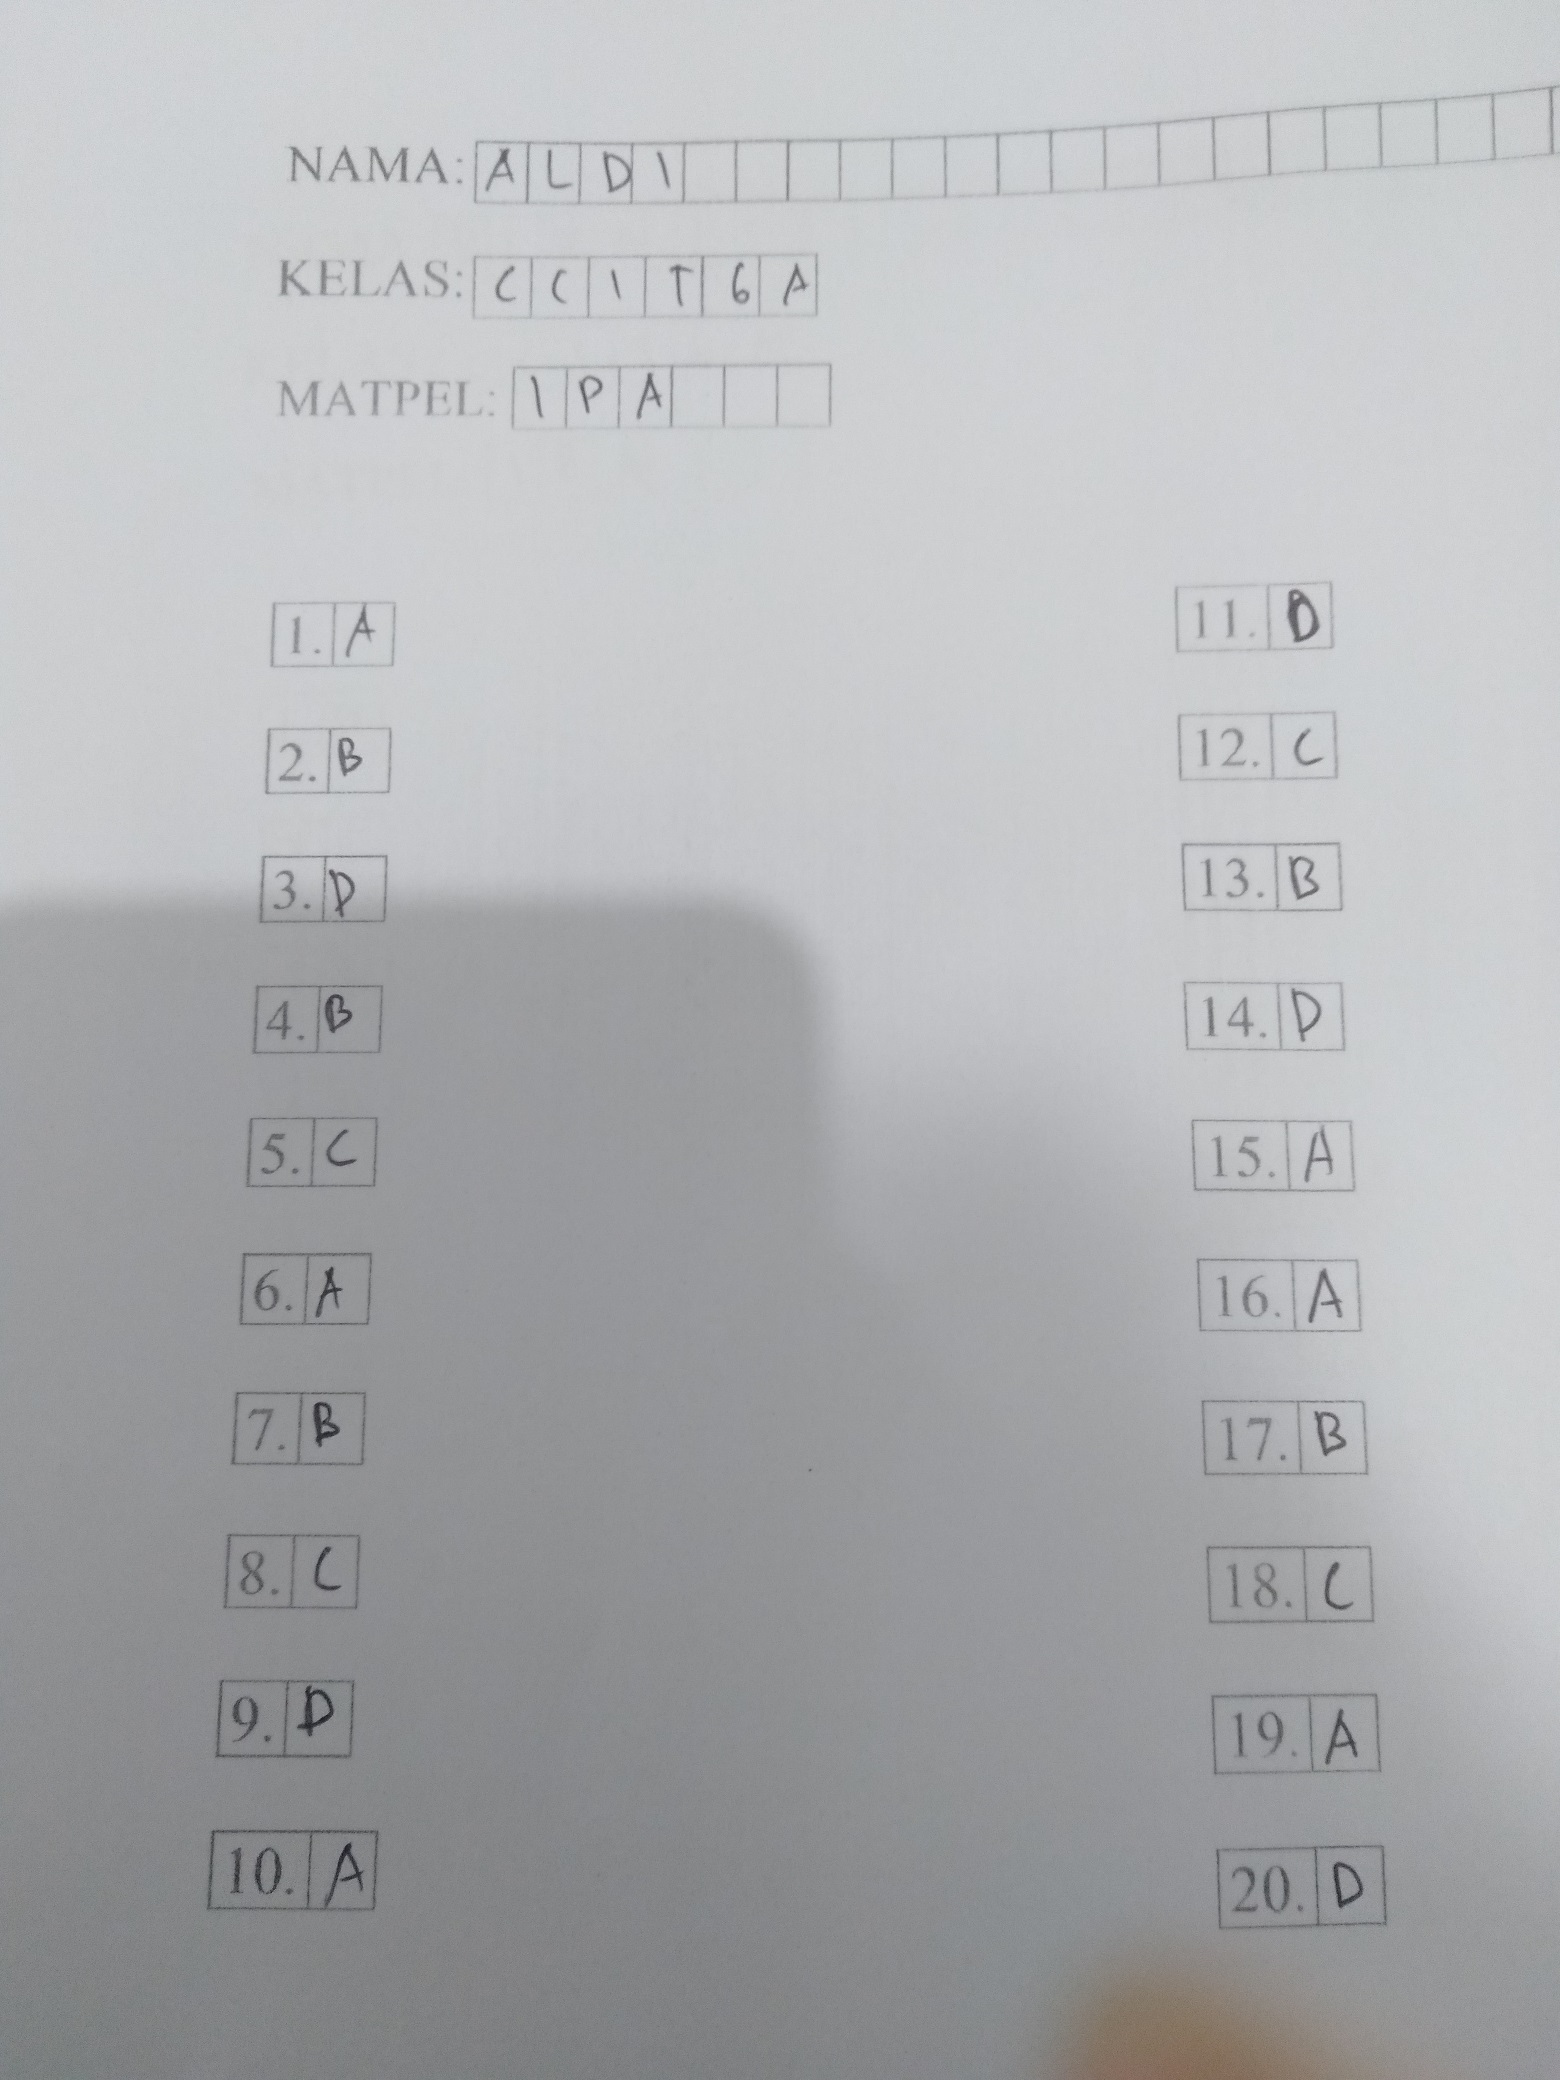 NAMA: ALDI
KELAS: CCIT6A
MATPEL: IPA
1. A
2. B
3. D
4. B
5. C
6. A
7. B
8. C
9. D
10. A
11. D
12. C
13. B
14. D
15. A
16. A
17. B
18. C
19. A
20. D